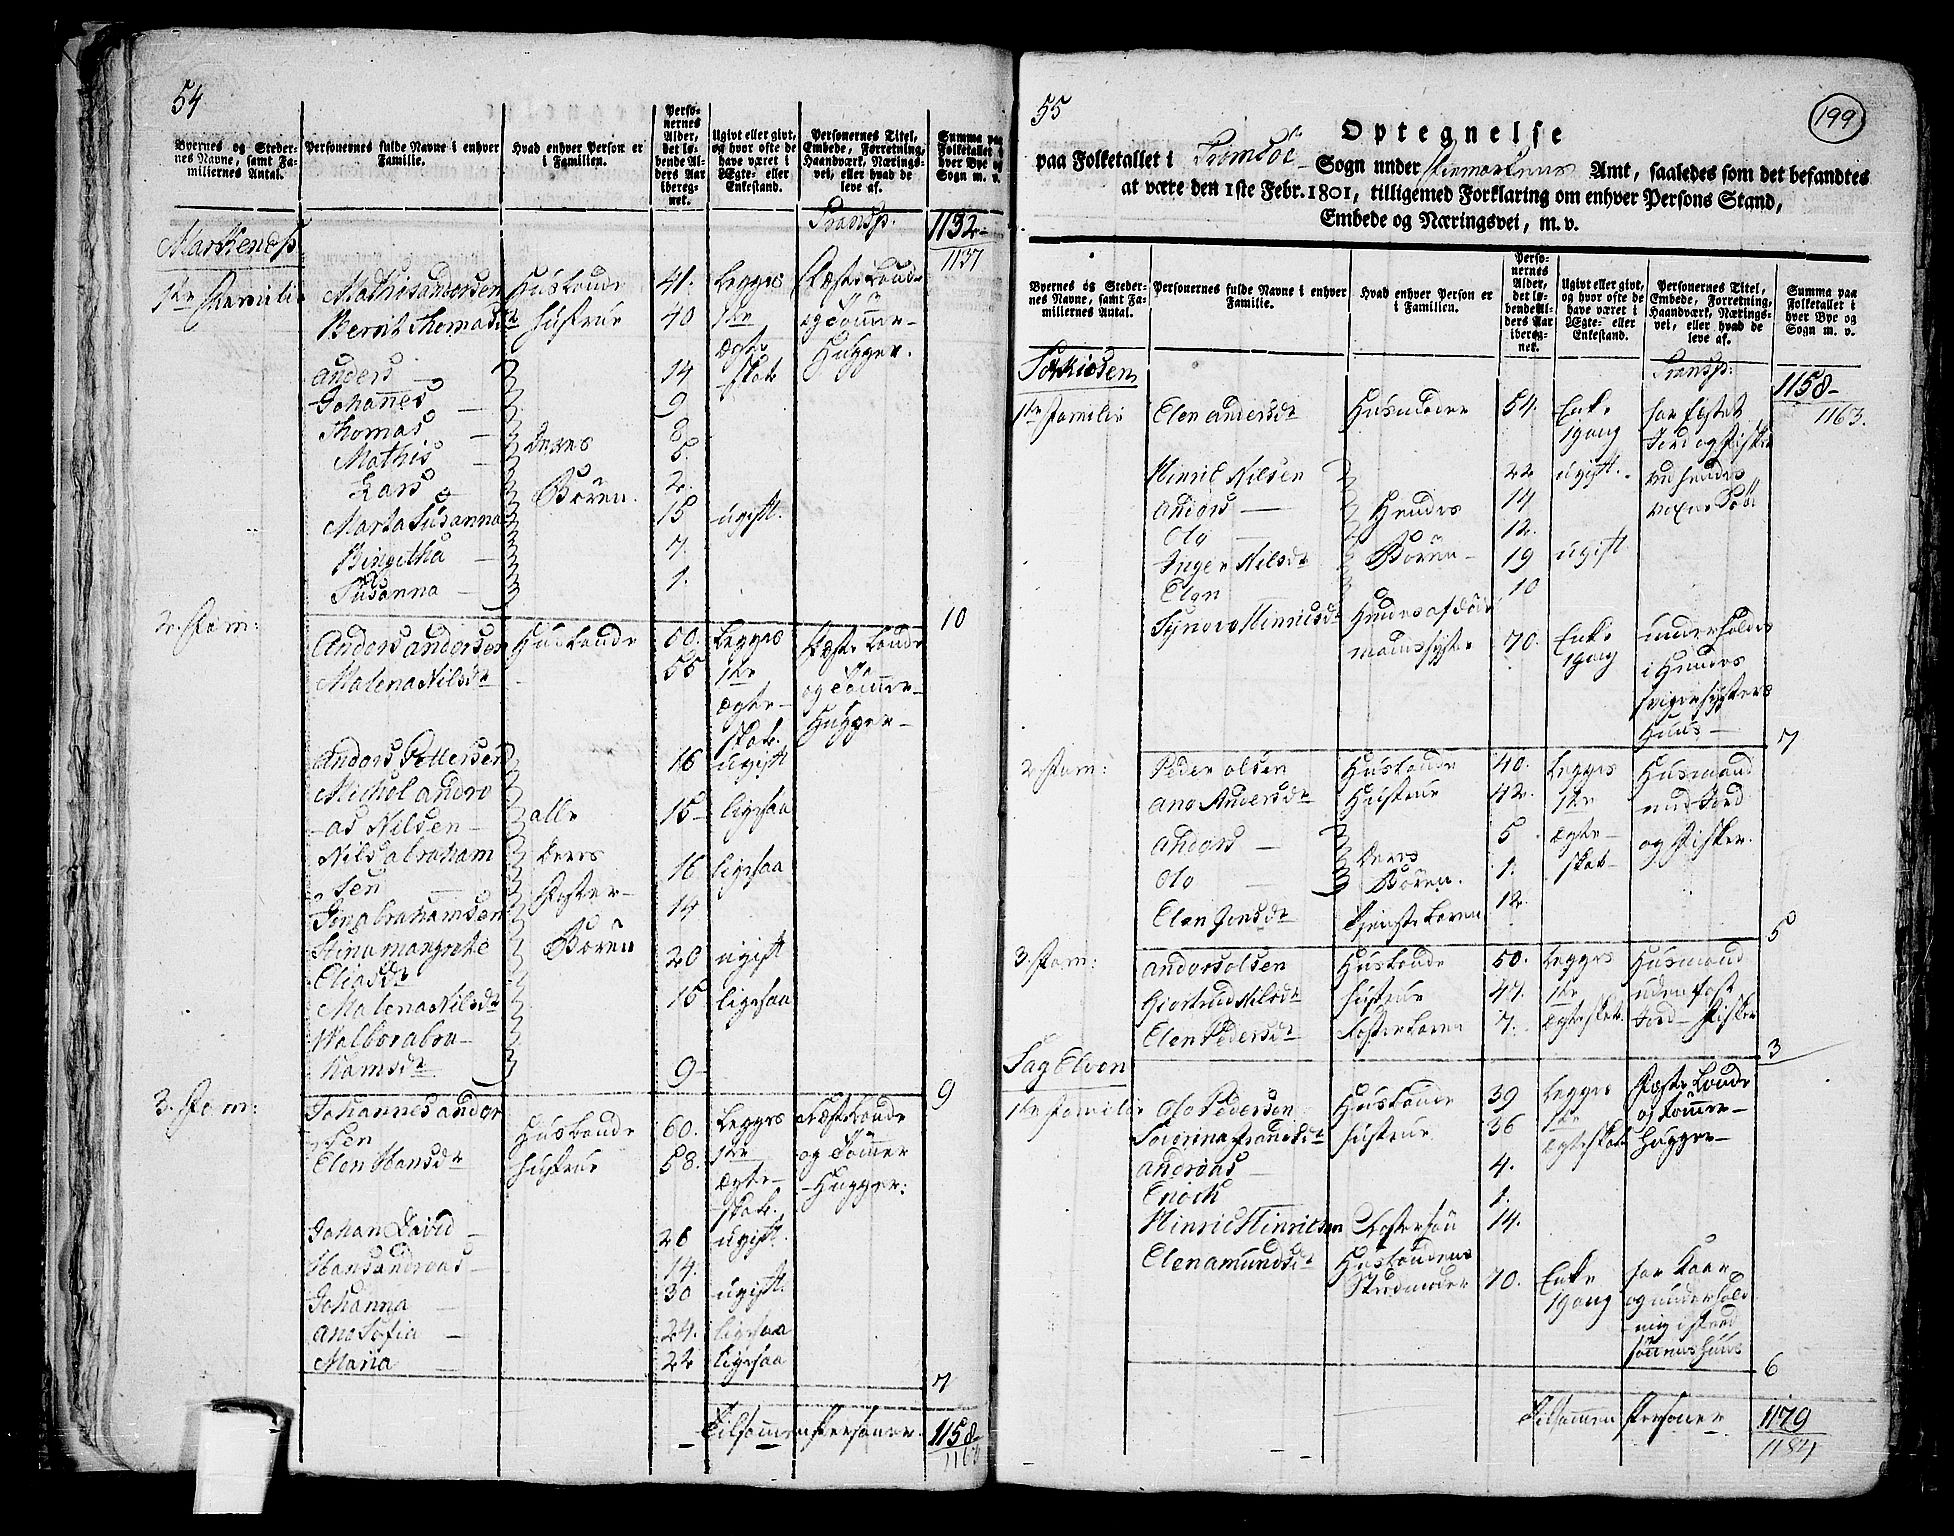 54
Byernes og Steder-
nes Navne, samt Fa-
miliernes Antal.
Personernes fulde Navne i enhver
Familie.
Hvad enhver Person er
i Familien.
Perso-
nernes
Alder,
det lø-
bende Al-
ders Aar
ibereg-
net.
Ugivt eller givt,
og hvor ofte de
have været i
Ægte- eller
Enkestand.
Personernes Titel,
Embede, Forretning,
Haandværk, Nærings-
vei, eller hvad de
leve af.
Summa paa
Folketallet i
hver Bye og
Sogn m. v.
Transp. 1132-
1137
1te Familie
Mathis andersen Husbonde 41. begges
Berrit Thomasdr Hustrue 40 1te
ægte-
skab
og Tömmer-
Hugger.
anders 14
Johannes 9
Thomas 8
Mathis Deres 5
Lars Bören. 2.
Marta Susanna 15 ugift.
Birgitha 7
Susanna 1.
10
2. Fam:
Anders andersen Husbonde 60. begges
Malena Nilsdr 55 1te
ægte-
skab.
og Tömmer-
Hugger-
Anders Pettersen 16 ugift
Michel andre
-as Nilsen alle 15- ligesaa
Nils abraham
-sen Deres 16 ligesaa
Jon abrahamsen Foster- 14
Stina margrete Bören 20 ugift
Eliasdr
Malena Nilsdr 15 ligesaa
Walbor abra-
hamsdr 9-
9
3. Fam:
Johannes ander
-sen Husbonde 60. begges
Elen Hansdr Hustrue 58. 1te og Tömmer
ægte- -Hugger:
-skab.
Johan David 26 ugift.
Hans andreas 14.
Johanna 30 ugift.
ano Sofia 24. ligesaa
Maria 22 ligesaa
7
Tilsammen Personer. 1158-
55
199
Optegnelse
paa Folketallet i Tromsöe Sogn under Finmarkens Amt, saaledes som det befandtes
at være den 1ste Febr. 1801, tilligemed Forklaring om enhver Persons Stand,
Embede og Næringsvei, m. v.
Byernes og Steder-
nes Navne, samt Fa-
miliernes Antal.
Personernes fulde Navne i enhver
Familie.
Hvad enhver Person er
i Familien.
Perso-
nernes
Alder,
det lø-
bende Al-
ders Aar
ibereg-
net.
Ugivt eller givt,
og hvor ofte de
have været i
Ægte- eller
Enkestand.
Personernes Titel,
Embede, Forretning,
Haandværk, Nærings-
vei, eller hvad de
leve af.
Summa paa
Folketallet i
hver Bye og
Sogn m. v.
Transp: 1158-
1163.
1te Familie Elen andersdr Husmoder 54. Enke har fæstet
1gang Jord og Fisker
Hinric Nilsen 22 ugift. ved hendes
anders Hendes 14 voxne Sön
Olo 12.
Inger Nilsdr Bören- 19 ugift
Elen 10
Synove Hinricsdr Hendes afdöde
mands syster 70. Enke underholdes
1gang i Hendes
svigersysters
Huus-
7
2. Fam: Peder olsen Husbonde 40. begges Husmand
ano Andersdr Hustrue 42. 1te med Jord
anders 5 ægte- og Fisker.
Olo Deres Bören. 1. skab-
Elen Jonsdr Tieneste Loren 12.
5
3. Fam: anders olsen Husbonde 50. begges Husmand
Giertrud Nilsdr Hustrue 47. 1te uden fast
Elen Pedersdr 7. ægteskab. Jord- Fisker
3
Sag Elven
1te Familie Olo Pedersen Husbonde 39 begges
Severina Fransdr Hustrue 36 1te og Tömmer-
andreas 4. ægteskab Hugger-
Enoch 1.
Hinric Hinricsen Fostersön 14.
Elen amundsdr Husbondens
Stedmoder 70. Enke
1gang
6
Tilsammen Personer 1179
1184